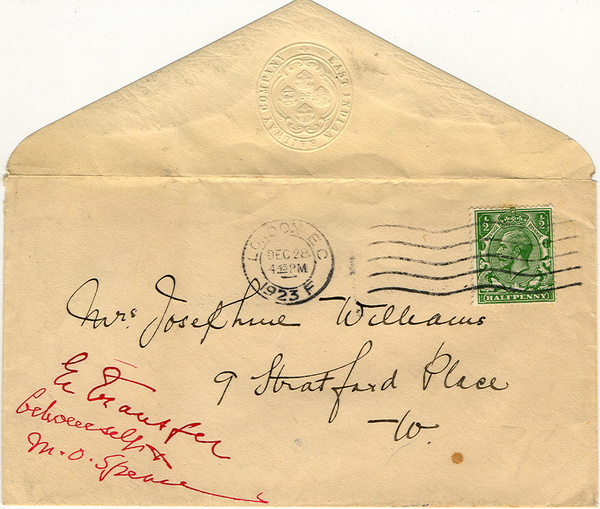 EAST INDIAN RAILWAY COMPANY
LONDON. E.C.
DEC 28
4.15 PM
1923 F
½ ½
HALFPENNY
Mrs. Josephine Williams
9 Stratford Place
W.
Transfer
M. O. Spence